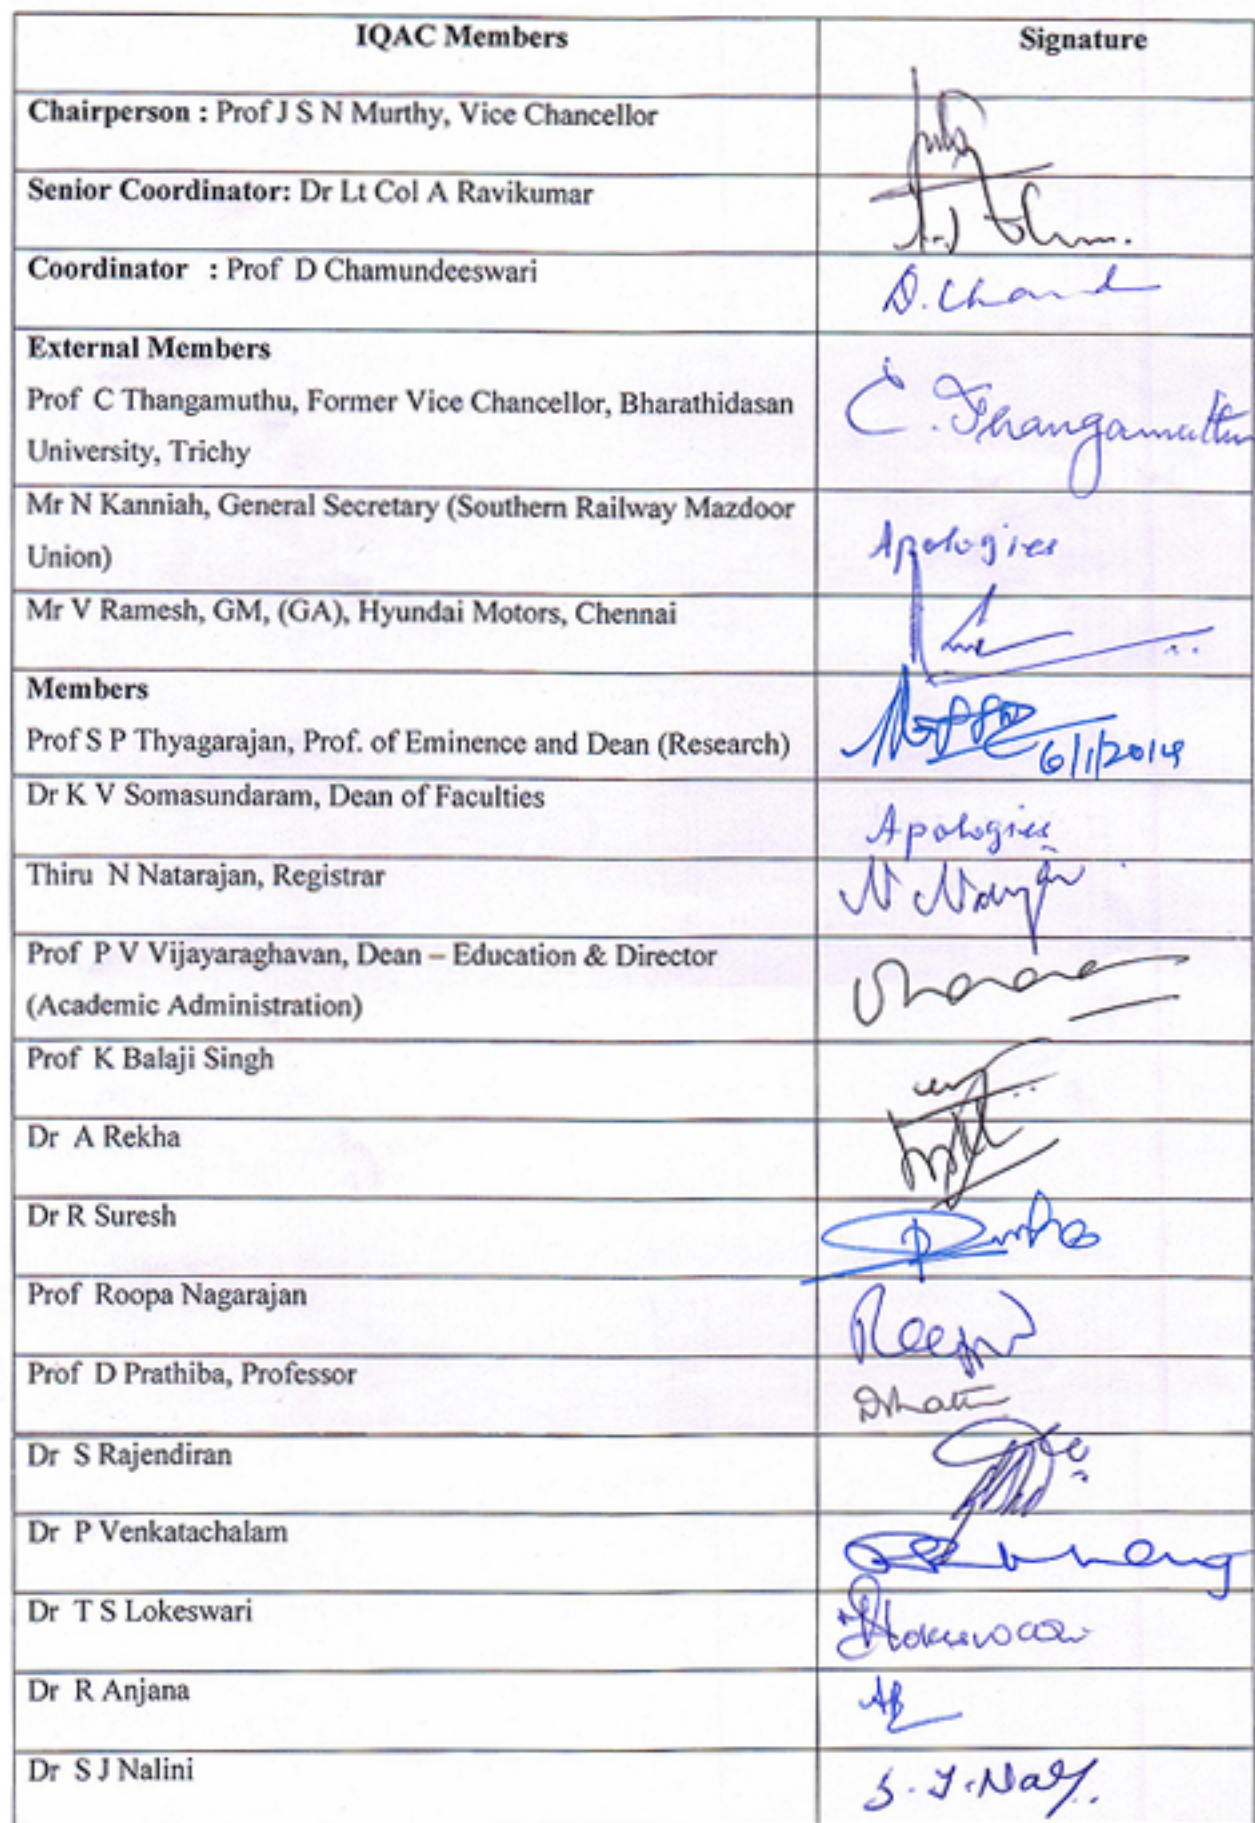 IQAC Members Signature
Chairperson : Prof J S N Murthy, Vice Chancellor
Senior Coordinator: Dr Lt Col A Ravikumar
Coordinator : Prof D Chamundeeswari
D. Chand
External Members
Prof C Thangamuthu, Former Vice Chancellor, Bharathidasan
University, Trichy
C. Thangamuthu
Mr N Kanniah, General Secretary (Southern Railway Mazdoor
Union)
Apologies
Mr V Ramesh, GM, (GA), Hyundai Motors, Chennai
Members
Prof S P Thyagarajan, Prof. of Eminence and Dean (Research)
6/1/2014
Dr K V Somasundaram, Dean of Faculties
Apologies
Thiru N Natarajan, Registrar
Prof P V Vijayaraghavan, Dean – Education & Director
(Academic Administration)
Prof K Balaji Singh
Dr A Rekha
Dr R Suresh
Prof Roopa Nagarajan
Prof D Prathiba, Professor
Dr S Rajendiran
Dr P Venkatachalam
Dr T S Lokeswari
Dr R Anjana
Dr S J Nalini